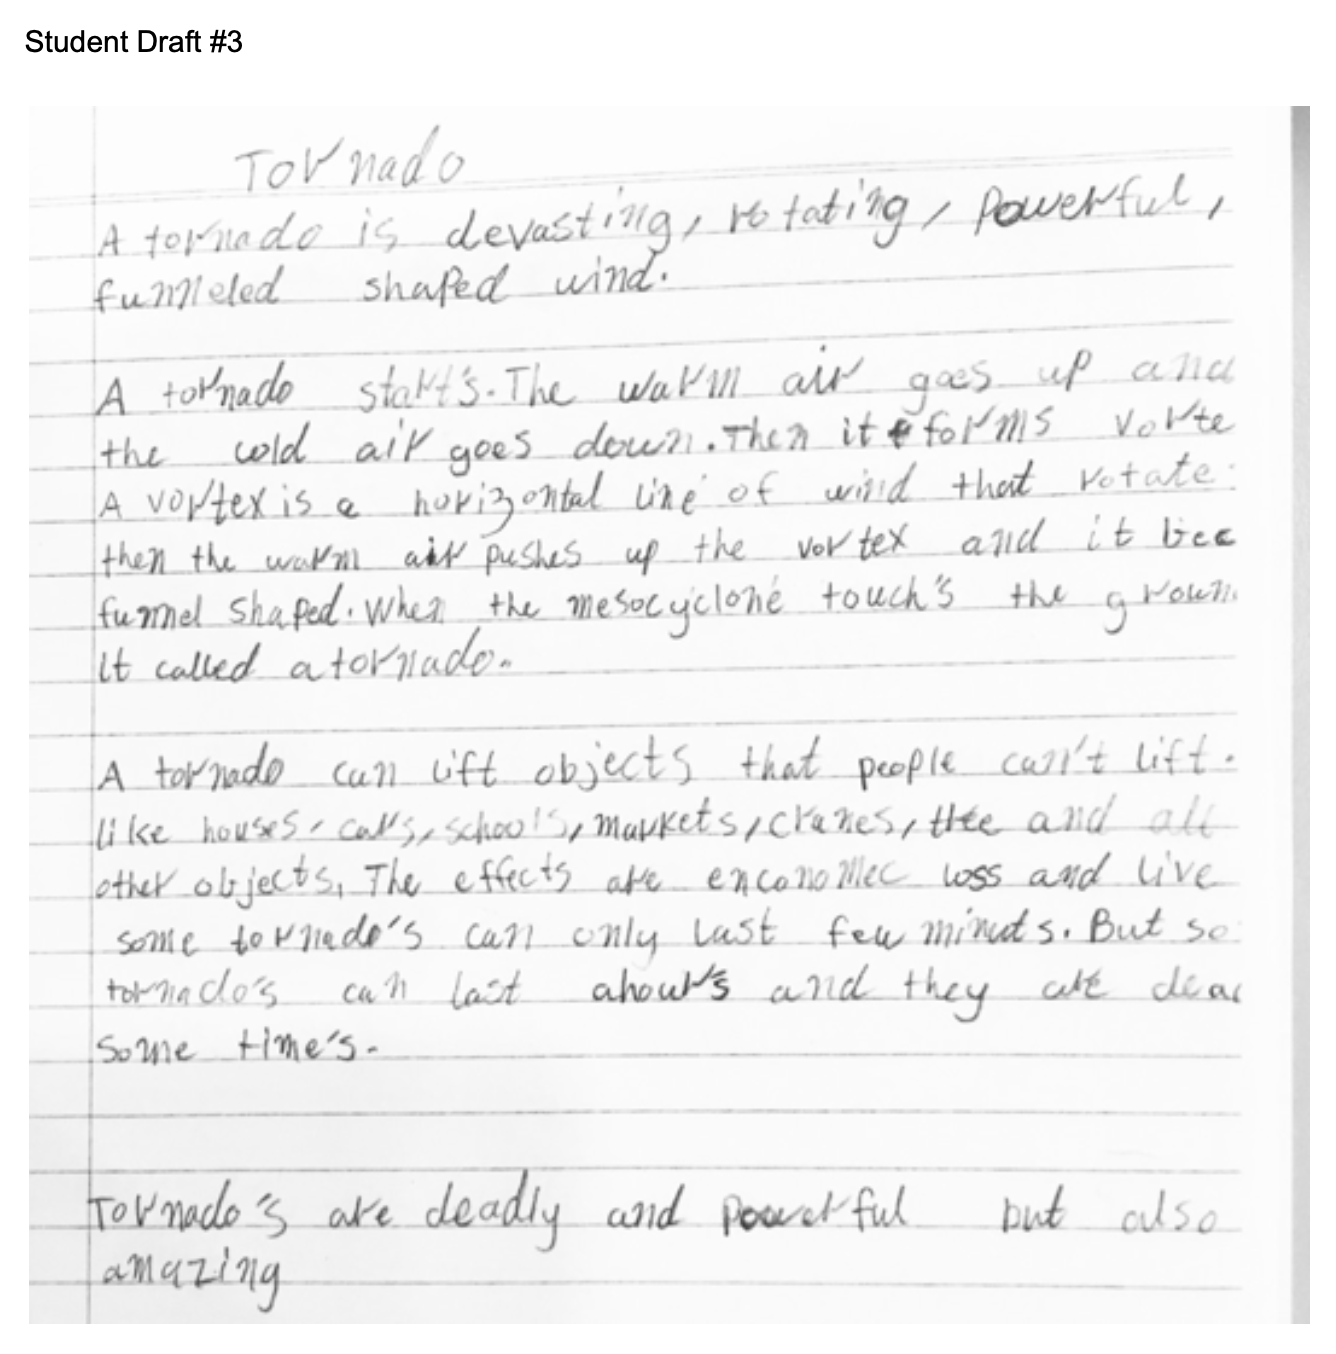 Student Draft #3
Tornado
A tornado is devasting, rotating, powerful,
funneled shaped wind.
A tornado start's. The warm air goes up and
the cold air goes down. Then it forms vorte
A vortex is a horizontal line of wind that rotate
then the warm air pushes up the vortex and it bec
funnel shaped. When the mesocyclone touch's the groun
It called a tornado.
A tornado can lift objects that people can't lift.
like houses, cars, schools, markets, cranes, and all
other objects, The effects are enconomec loss and live
some tornado's can only last few minuts. But so
tornado's can last ahour's and they are dea
some time's.
Tornado's are deadly and powerful but also
amazing